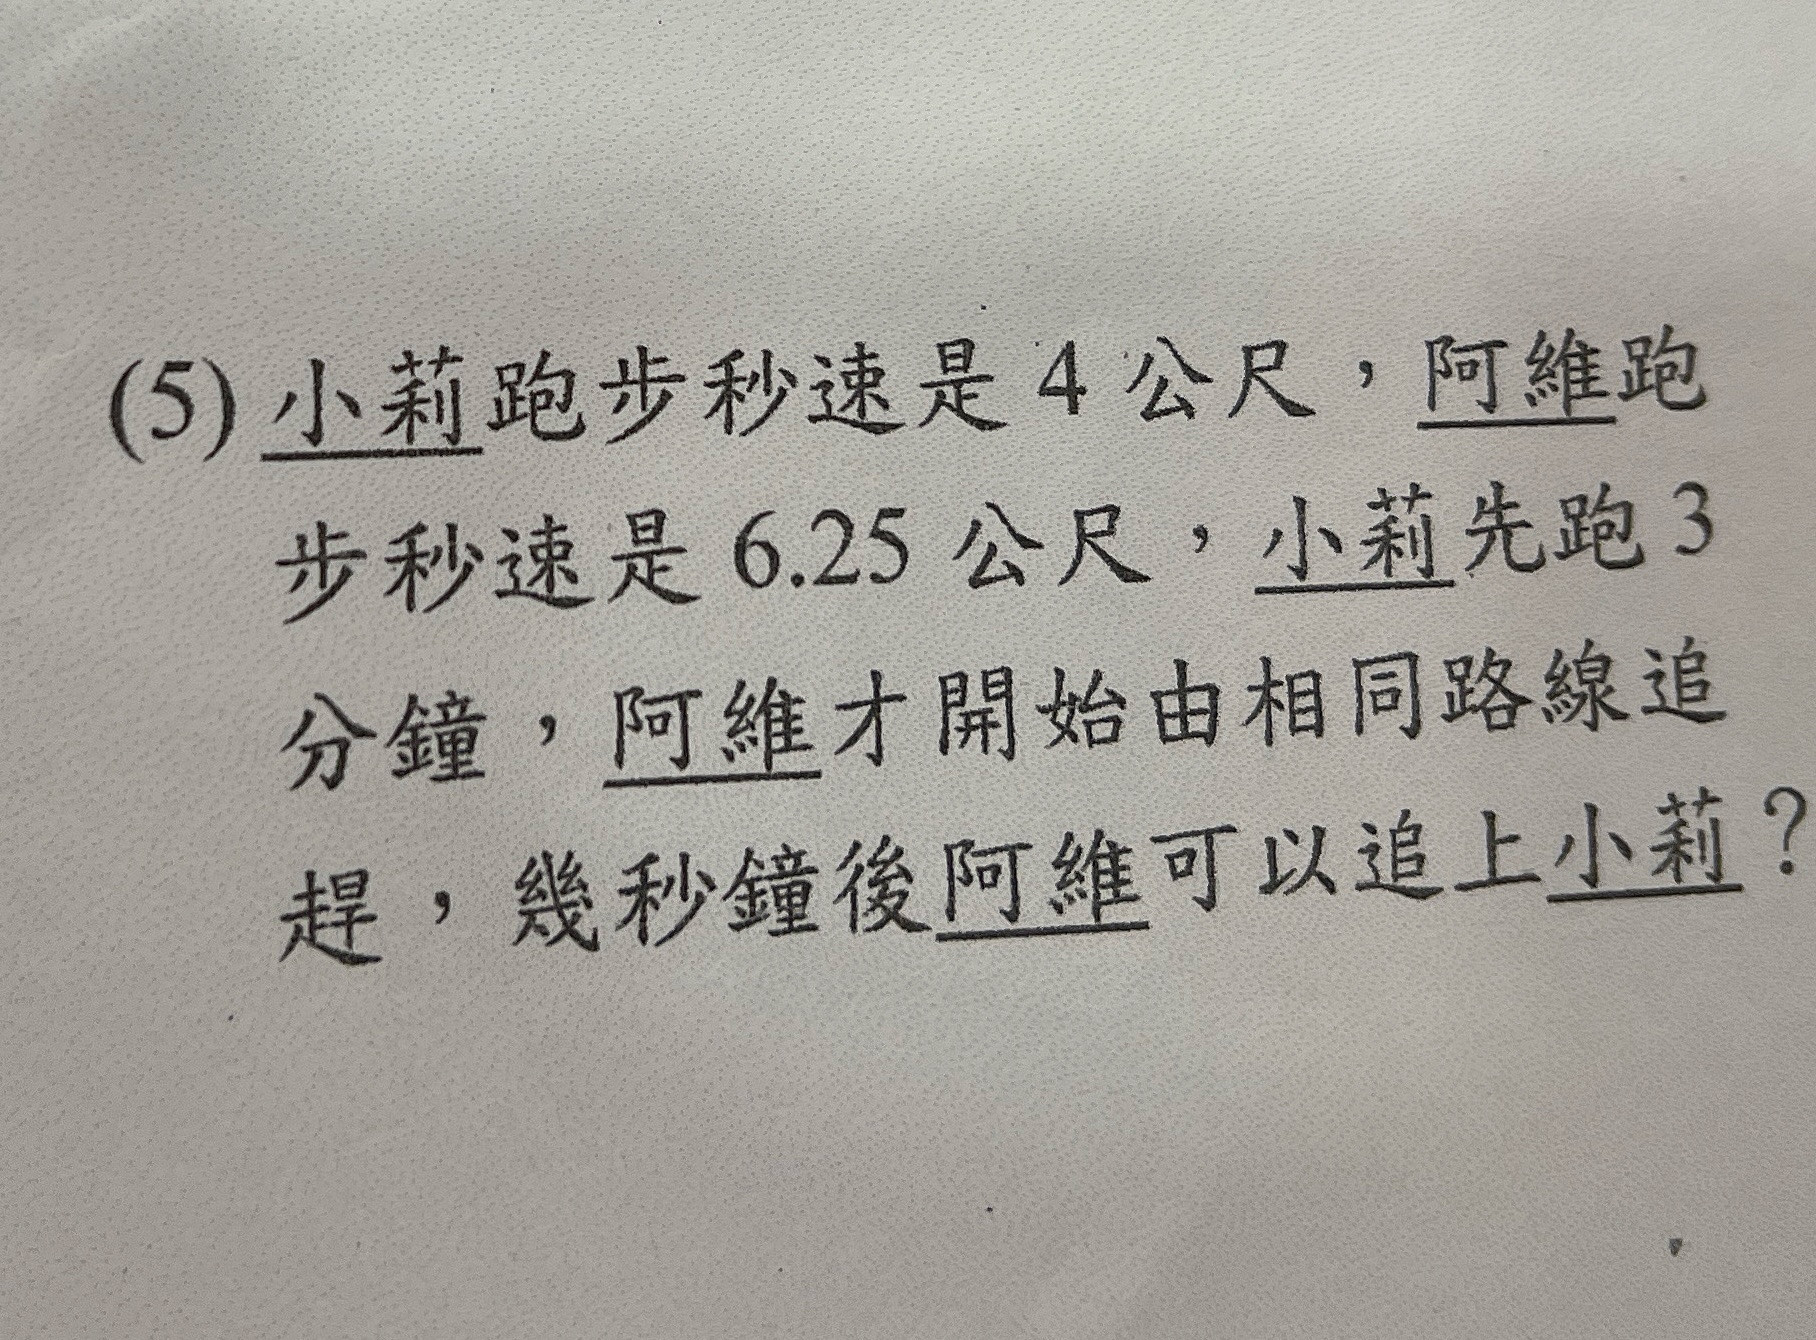 (5) 小莉跑步秒速是 4 公尺，阿維跑
步秒速是 6.25 公尺，小莉先跑 3
分鐘，阿維才開始由相同路線追
趕，幾秒鐘後阿維可以追上小莉？